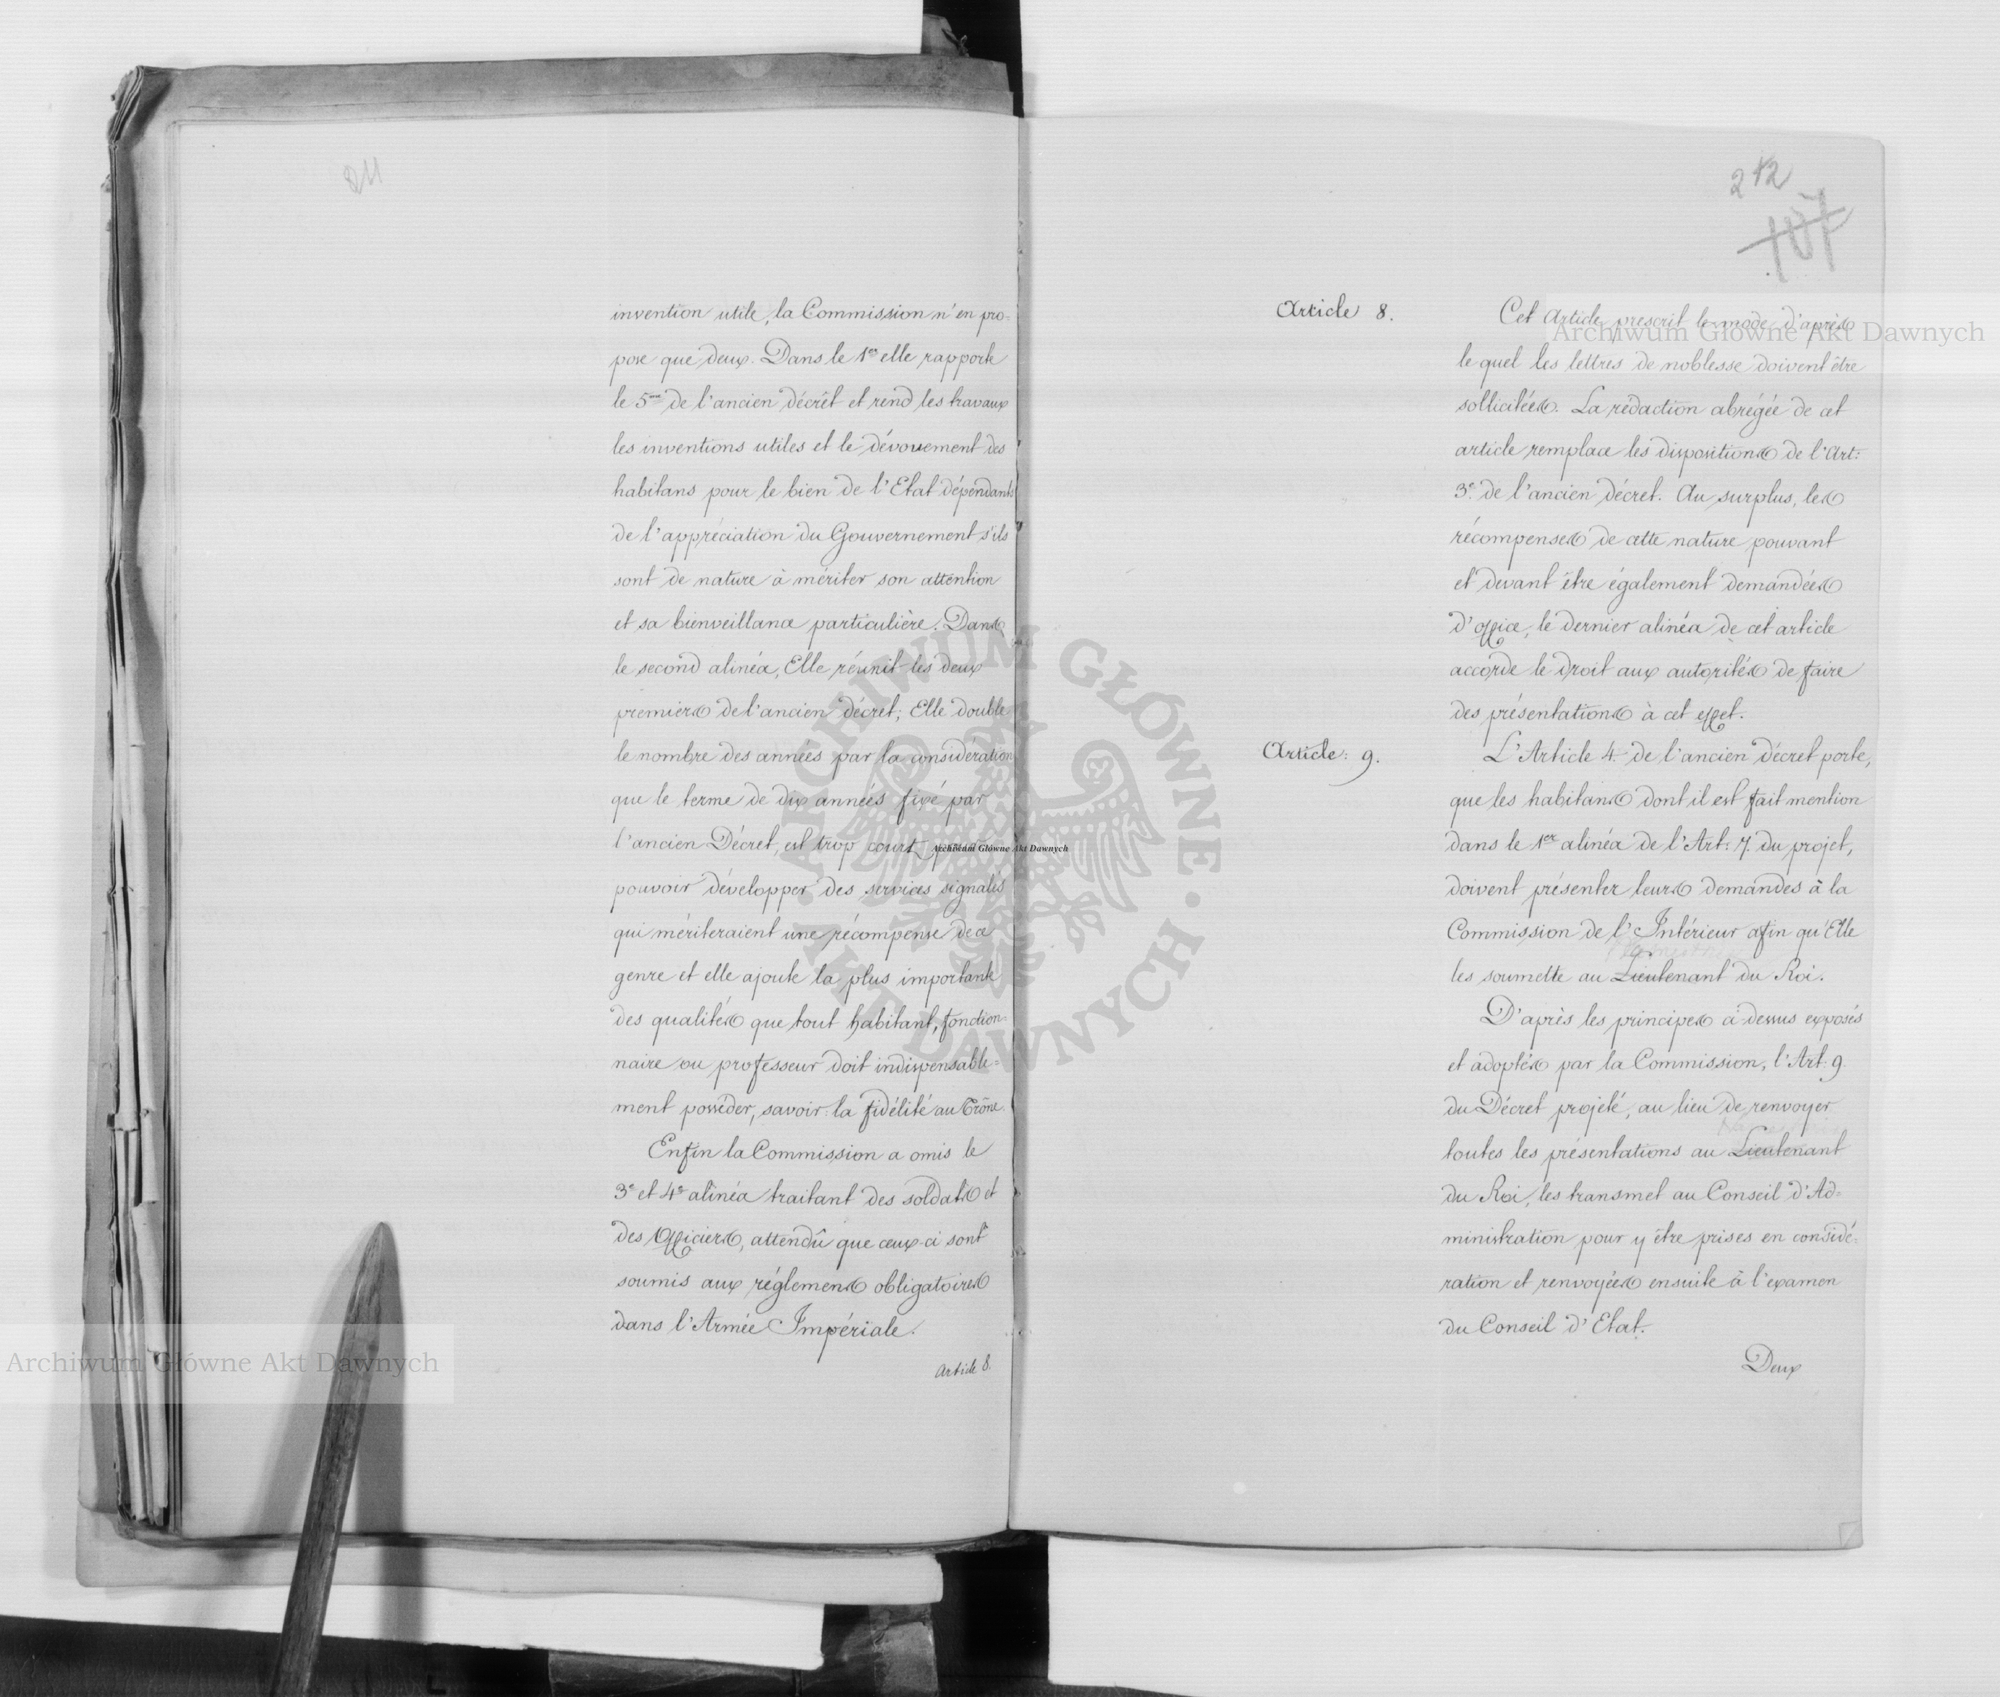 211
invention utile, la Commission n'en pro=
pose que deux. Dans le 1er elle rapporte
le 5me de l'ancien décrêt et rend les travaux
les inventions utiles et le dévouement des
habitans pour le bien de l'Etat dépendants
de l'appréciation du Gouvernement s'ils
sont de nature à mériter son attention
et sa bienveillance particulière. Dans
le second alinéa, Elle réunit les deux
premiers de l'ancien décret; Elle double
le nombre des années par la considération
que le terme de dix années fixé par
l'ancien Décret, est trop court, pour
pouvoir développer des services signalés
qui mériteraient une récompense de ce
genre et elle ajoute la plus importante
des qualités que tout habitant, fonction=
naire ou professeur doit indispensable=
ment posséder, savoir: la fidélité au Trône.
Enfin la Commission a omis le
3e et 4e alinéa traitant des soldats et
des Officiers, attendû que ceux-ci sont
soumis aux réglemens obligatoires
dans l'Armée Impériale.
Article 8.
212
107
Article 8.
Cet Article prescrit le mode d'après
le quel les lettres de noblesse doivent être
sollicitées. La rédaction abrégée de cet
article remplace les dispositions de l'Art:
3e de l'ancien décret. Au surplus, les
récompenses de cette nature pouvant
et devant être également demandées
d'office, le dernier alinéa de cet article
accorde le droit aux autorités de faire
des présentations à cet effet.
Article: 9.
L'Article 4 de l'ancien décret porte,
que les habitans dont il est fait mention
dans le 1er alinéa de l'Art: 7. du projet,
doivent présenter leurs demandes à la
Commission de l'Intérieur afin qu'Elle
les soumette au Lieutenant du Roi.
D'après les principes ci-dessus exposés
et adoptés par la Commission, l'Art: 9
du Décret projeté, au lieu de renvoyer
toutes les présentations au Lieutenant
du Roi, les transmet au Conseil d'Ad=
ministration pour y être prises en considé=
ration et renvoyées ensuite à l'examen
du Conseil d'Etat.
Deux
Archiwum Główne Akt Dawnych
Archiwum Główne Akt Dawnych
Archiwum Główne Akt Dawnych
ARCHIWUM GŁÓWNE AKT DAWNYCH